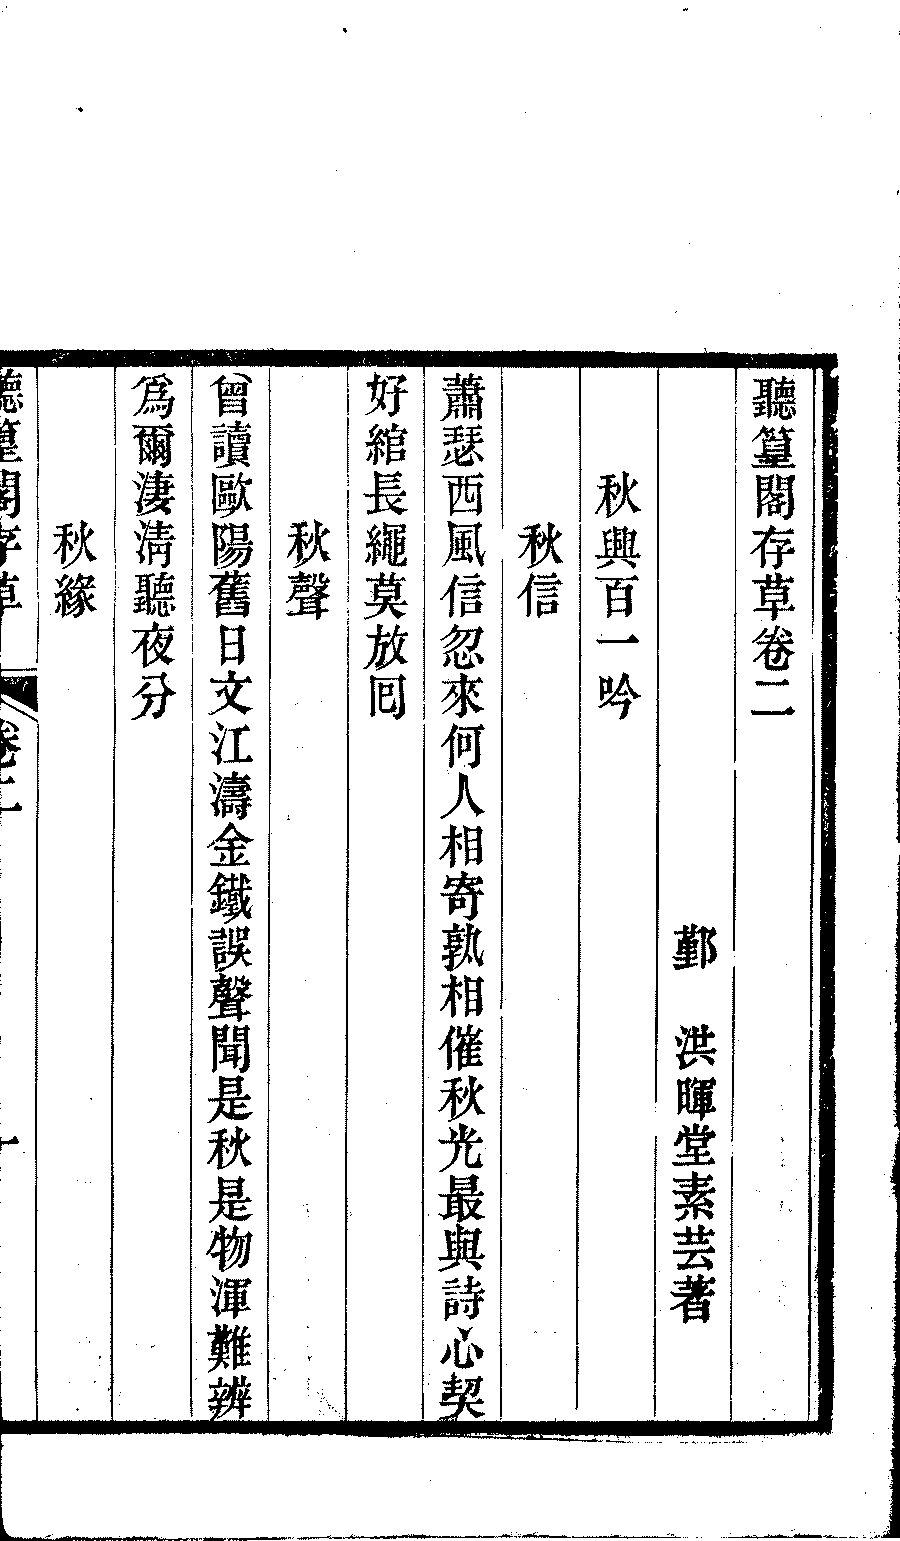 聽篁閣存草卷二
鄞　洪暉堂素芸著
秋興百一吟
秋信
蕭瑟西風信忽來何人相寄孰相催秋光最與詩心契
好綰長繩莫放囘
秋聲
曾讀歐陽舊日文江濤金鐵誤聲聞是秋是物渾難辨
爲爾淒淸聽夜分
秋緣
聽篁閣存草　卷二　一